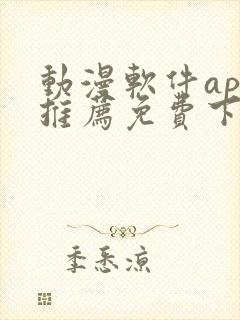 動漫軟件ap
推薦免費下
季悉涼